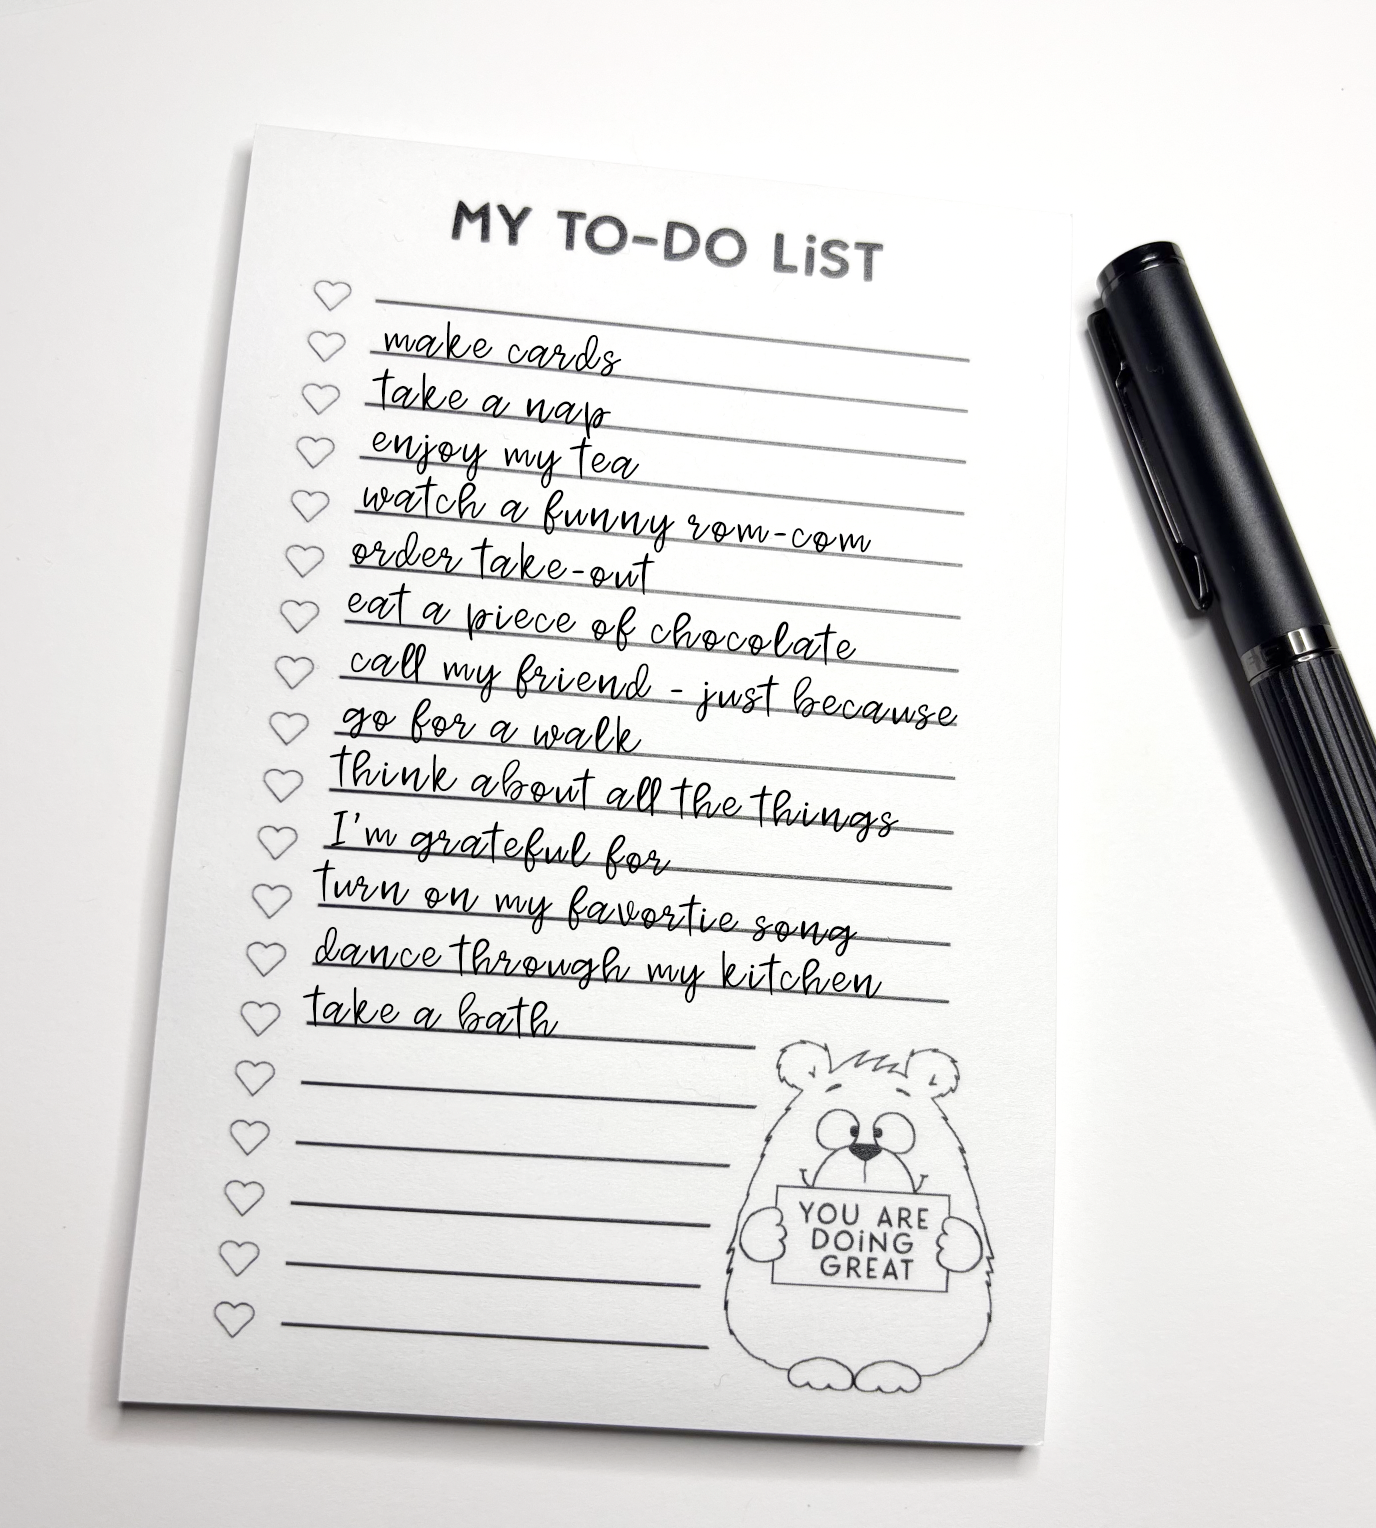 MY TO-DO LiST
make cards
take a nap
enjoy my tea
watch a funny rom-com
order take-out
eat a piece of chocolate
call my friend - just because
go for a walk
think about all the things
I'm grateful for
turn on my favortie song
dance through my kitchen
take a bath
YOU ARE
DOiNG
GREAT